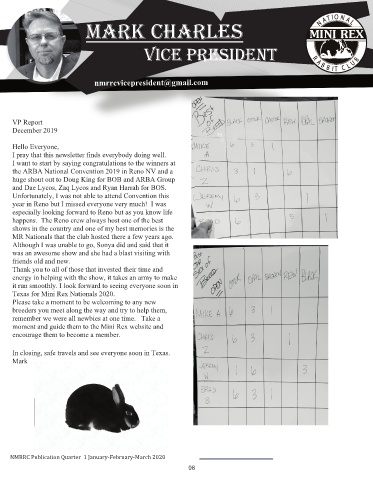 MARK CHARLES
VICE PRESIDENT
NATIONAL
MINI REX
RABBIT CLUB
nmrrcvicepresident@gmail.com
VP Report
December 2019
Hello Everyone,
I pray that this newsletter finds everybody doing well.
I want to start by saying congratulations to the winners at
the ARBA National Convention 2019 in Reno NV and a
huge shout out to Doug King for BOB and ARBA Group
and Dae Lycos, Zaq Lycos and Ryan Harrah for BOS.
Unfortunately, I was not able to attend Convention this
year in Reno but I missed everyone very much! I was
especially looking forward to Reno but as you know life
happens. The Reno crew always host one of the best
shows in the country and one of my best memories is the
MR Nationals that the club hosted there a few years ago.
Although I was unable to go, Sonya did and said that it
was an awesome show and she had a blast visiting with
friends old and new.
Thank you to all of those that invested their time and
energy in helping with the show, it takes an army to make
it run smoothly. I look forward to seeing everyone soon in
Texas for Mini Rex Nationals 2020.
Please take a moment to be welcoming to any new
breeders you meet along the way and try to help them,
remember we were all newbies at one time. Take a
moment and guide them to the Mini Rex website and
encourage them to become a member.
In closing, safe travels and see everyone soon in Texas.
Mark
OPEN
BLACK
OTTER
REW
OPAL
BROKEN
MIKE A
6 3 1
CHRIS Z
3 1 6
JEREMY
6 3
6
OPEN
OTTER
OPAL
BROKEN
REW
BLACK
MIKE A
6 3
CHRIS Z
6 3 1
1 6 3
BRAD S
6 3 1
NMRRC Publication Quarter 1 January-February-March 2020